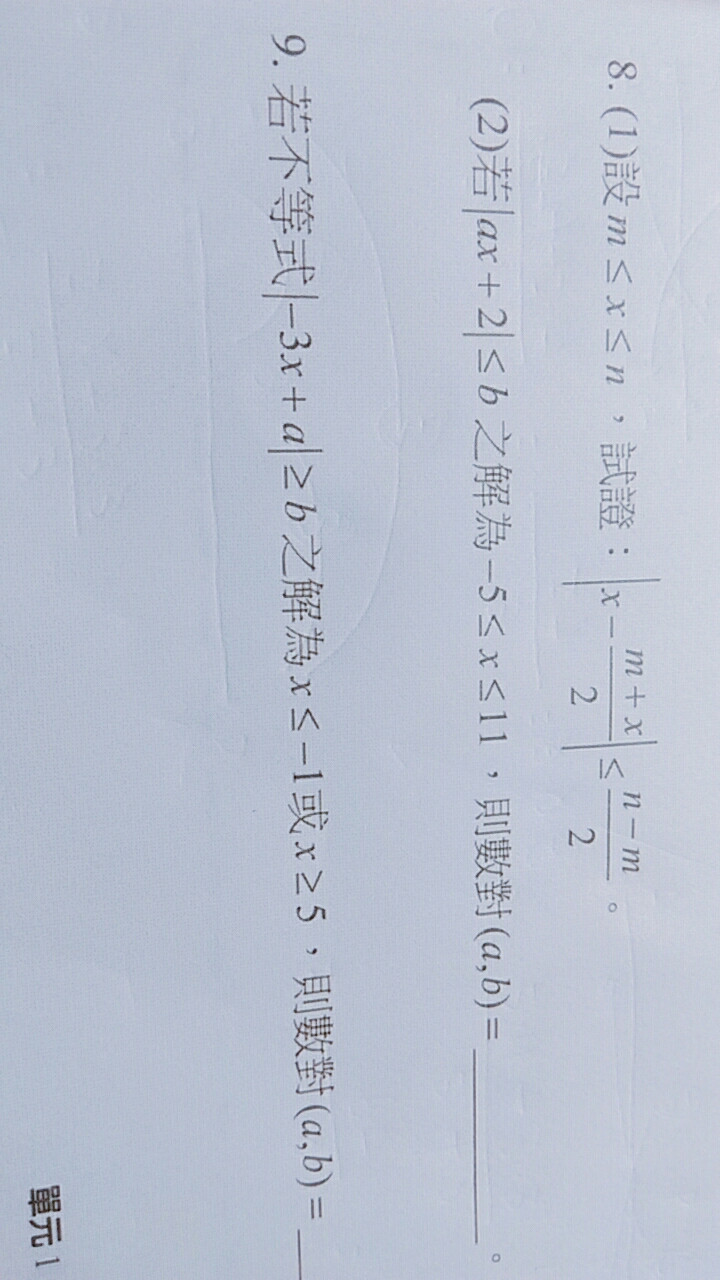 8. (1)設 m ≤ x ≤ n ，試證：|x − (m + x)/2| ≤ (n − m)/2 。
(2)若|ax + 2| ≤ b 之解為−5 ≤ x ≤ 11，則數對(a,b) = ________。
9. 若不等式|−3x + a| ≥ b 之解為 x ≤ −1或 x ≥ 5，則數對(a,b) = __
單元 1